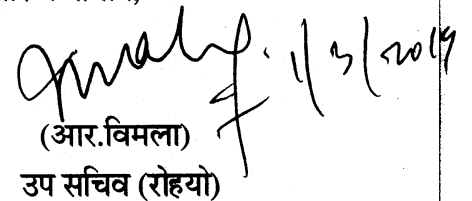 1/3/2019
(आर.विमला)
उप सचिव (रोहयो)